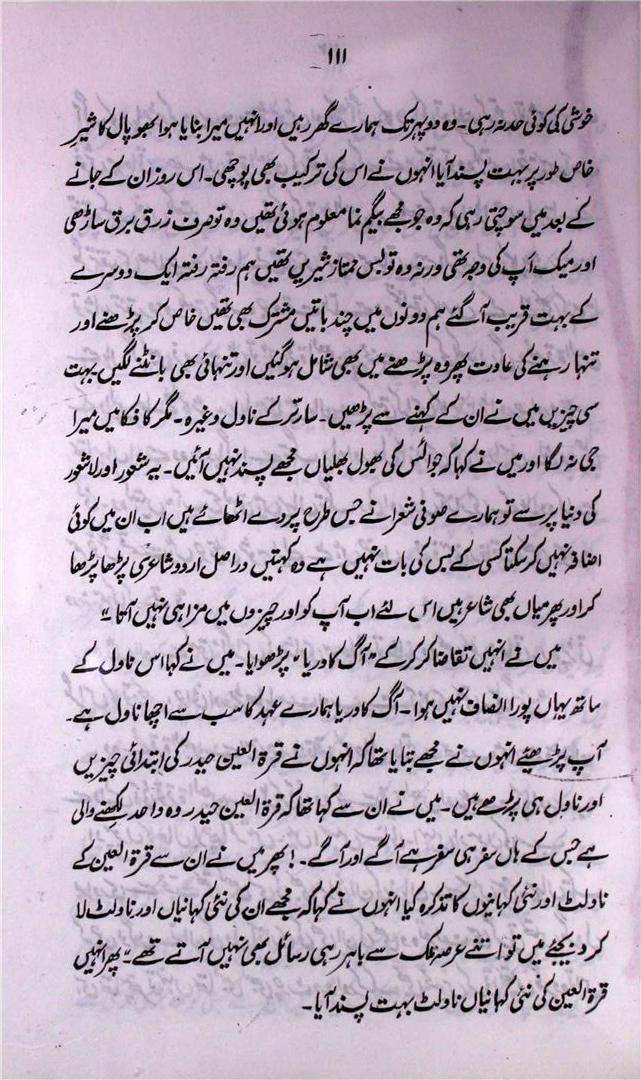 ۱۱۱
خوشی کی کوئی حد نہ رہی۔ وہ دوپہر تک ہمارے گھر رہیں اور انہیں میرا بنایا ہوا بھوپال کا شیر
خاص طور پر بہت پسند آیا انہوں نے اس کی ترکیب بھی پوچھی۔ اس روز ان کے جانے
کے بعد میں سوچتی رہی کہ وہ جو مجھے بیگم نما معلوم ہوئی تھیں وہ تو صرف زرق برق ساڑھی
اور میک اَپ کی وجہ تھی ورنہ وہ تو بس ممتاز شیریں تھیں ہم رفتہ رفتہ ایک دوسرے
کے بہت قریب آگئے ہم دونوں میں چند باتیں مشترک بھی تھیں خاص کر پڑھنے اور
تنہا رہنے کی عادت پھر وہ پڑھنے میں بھی شامل ہوگئیں اور تنہائی بھی بانٹنے لگیں بہت
سی چیزیں میں نے ان کے کہنے سے پڑھیں۔ سارتر کے ناول وغیرہ۔ مگر کافکا میں میرا
جی نہ لگا اور میں نے کہا کہ جوائس کی بھول بھلیاں مجھے پسند نہیں آئیں۔ یہ شعور اور لاشعور
کی دنیا پر سے تو ہمارے صوفی شعرا نے جس طرح پردے اٹھائے ہیں اب ان میں کوئی
اضافہ نہیں کرسکتا کسی کے بس کی بات نہیں ہے وہ کہتیں دراصل اردو شاعری پڑھا پڑھا
کر اور پھر میاں بھی شاعر ہیں اس لئے اب آپ کو اور چیزوں میں مزا ہی نہیں آتا ۔"
میں نے انہیں تقاضا کر کر کے "آگ کا دریا" پڑھوایا۔ میں نے کہا اس ناول کے
ساتھ یہاں پورا انصاف نہیں ہوا۔ آگ کا دریا ہمارے عہد کا سب سے اچھا ناول ہے۔
آپ پڑھیئے انہوں نے مجھے بتایا تھا کہ انہوں نے قرۃ العین حیدر کی ابتدائی چیزیں
اور ناول ہی پڑھے ہیں۔ میں نے ان سے کہا تھا کہ قرۃ العین حیدر وہ واحد لکھنے والی
ہے جس کے ہاں سفر ہی سفر ہے آگے اور آگے۔! پھر میں نے ان سے قرۃ العین کے
ناولٹ اور نئی کہانیوں کا تذکرہ کیا انہوں نے کہا کہ مجھے ان کی نئی کہانیاں اور ناولٹ لا
کر دیجئے میں تو اتنے عرصہ ملک سے باہر رہی رسائل بھی نہیں آتے تھے۔" پھر انہیں
قرۃ العین کی نئی کہانیاں ناولٹ بہت پسند آیا۔